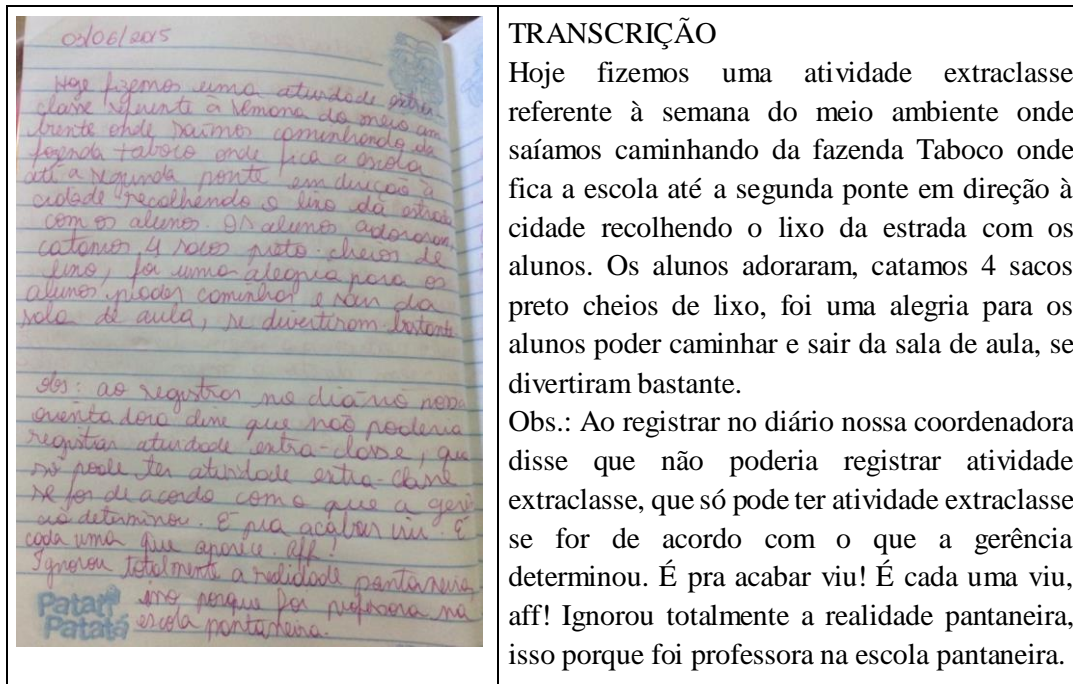 03/06/2015
Hoje fizemos uma atividade extra
classe referente à semana do meio am
biente onde saímos caminhando da
fazenda taboco onde fica a escola
até a segunda ponte em direção à
cidade recolhendo o lixo da estrada
com os alunos. Os alunos adoraram,
catamos 4 sacos preto cheios de
lixo, foi uma alegria para os
alunos poder caminhar e sair da
sala de aula, se divertiram bastante
obs: ao registrar no diário nossa
orientadora disse que não poderia
registrar atividade extra-classe, que
só pode ter atividade extra-classe
se for de acordo com o que a gerên
cia determinou. É pra acabar viu. É
cada uma que aparece. aff!
Ignorou totalmente a realidade pantaneira,
isso porque foi professora na
escola pantaneira.
Patati
Patatá
TRANSCRIÇÃO
Hoje fizemos uma atividade extraclasse
referente à semana do meio ambiente onde
saíamos caminhando da fazenda Taboco onde
fica a escola até a segunda ponte em direção à
cidade recolhendo o lixo da estrada com os
alunos. Os alunos adoraram, catamos 4 sacos
preto cheios de lixo, foi uma alegria para os
alunos poder caminhar e sair da sala de aula, se
divertiram bastante.
Obs.: Ao registrar no diário nossa coordenadora
disse que não poderia registrar atividade
extraclasse, que só pode ter atividade extraclasse
se for de acordo com o que a gerência
determinou. É pra acabar viu! É cada uma viu,
aff! Ignorou totalmente a realidade pantaneira,
isso porque foi professora na escola pantaneira.